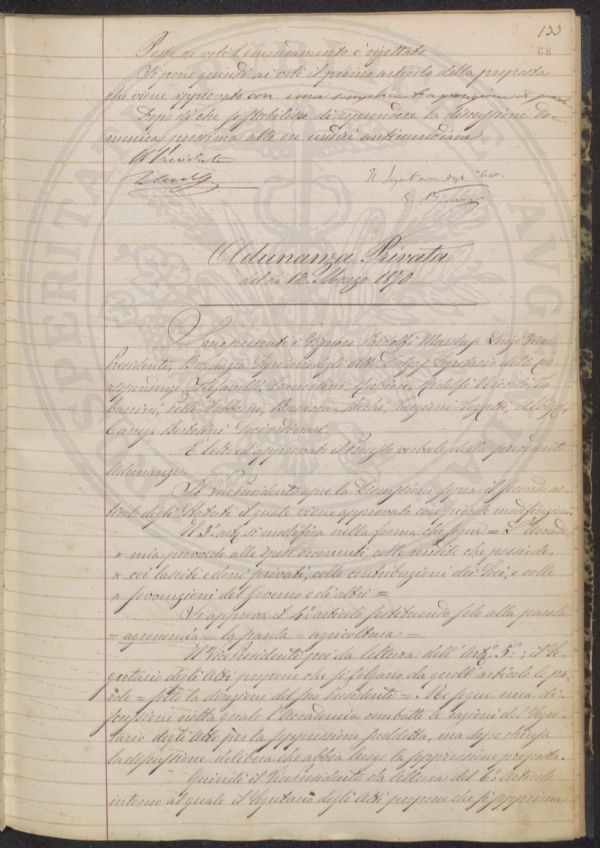 133
68
Posto ai voti l'emendamento è rigettato
Si pone quindi ai voti il primo articolo della proposta
che viene approvato con una semplice trasposizione di parole
Dopo di che si stabilisce di riprendere la discussione do-
menica prossima alle ore undici antimeridiane
Il Presidente
Il Segretario degli Atti
Adunanza Privata
del dì 13 Marzo 1870
Sono presenti i Signori Marchese Luigi Vice
Presidente, Segretario degli Atti Segretario delle cor
rispondenze
Soci ordinari
È letto ed approvato il Processo verbale della precedente
Adunanza.
Il Vice Presidente apre la Discussione sopra il secondo ar-
ticolo degli Statuti il quale viene approvato con piccola modificazione
Il 3º art. si modifica nella forma che segue = L'Accade
" mia provvede alle spese occorrenti, colle rendite che possiede,
" coi lasciti e doni privati, colle contribuzioni dei Soci, e colle
" sovvenzioni del governo e di altri =
Si approva il 4º articolo sostituendo solo alla parola
= agronomia = la parola = agricoltura =
Il Vice Presidente poi dà lettura dell'Art. 5º; il Se
gretario degli Atti propone che si tolgano da quell'articolo le pa
role = sotto la direzione del suo Presidente =. Ne segue una di-
scussione nella quale l'Accademia combatte le ragioni del Segre-
tario degli Atti per la soppressione suddetta, ma dopo chiusa
la discussione delibera che abbia luogo la soppressione proposta.
Quindi il Vice Presidente dà lettura del 6º Articolo
intorno al quale il Segretario degli Atti propone che si sopprima